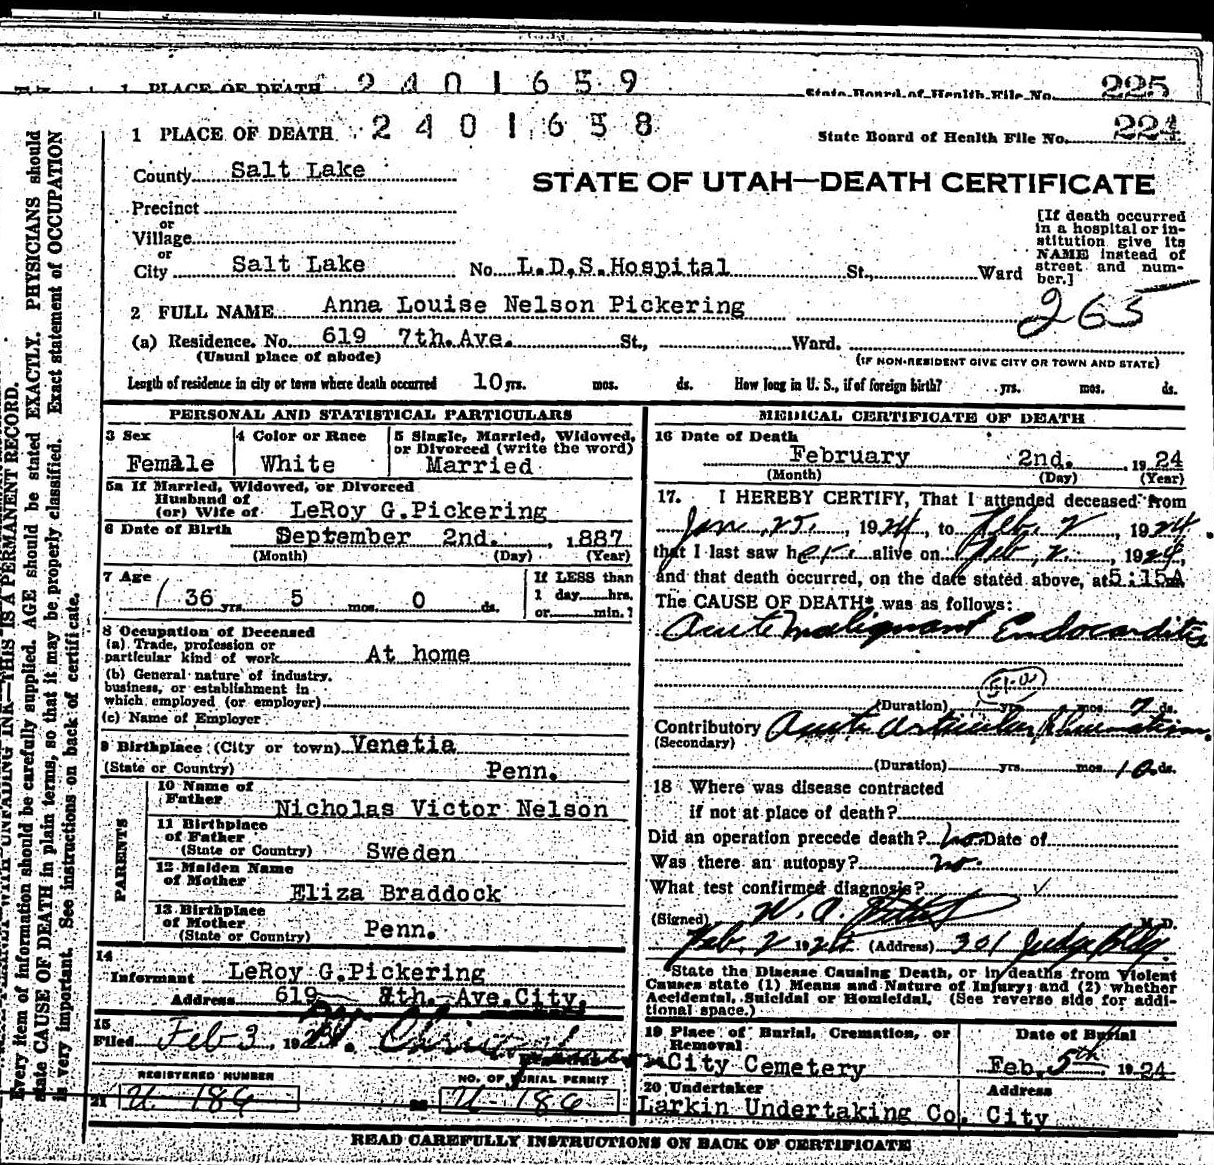 1 PLACE OF DEATH 2401659 State Board of Health File No. 225
1 PLACE OF DEATH 2401658 State Board of Health File No. 224
County Salt Lake
STATE OF UTAH—DEATH CERTIFICATE
Precinct
or
Village
or
City Salt Lake No. L.D.S. Hospital St., Ward
[If death occurred
in a hospital or in-
stitution give its
NAME instead of
street and num-
ber.]
2 FULL NAME Anna Louise Nelson Pickering
265
(a) Residence. No. 619 7th. Ave. St., Ward.
(Usual place of abode) (IF NON-RESIDENT GIVE CITY OR TOWN AND STATE)
Length of residence in city or town where death occurred 10 yrs. mos. ds. How long in U. S., if of foreign birth? yrs. mos. ds.
PERSONAL AND STATISTICAL PARTICULARS
3 Sex 4 Color or Race 5 Single, Married, Widowed,
or Divorced (write the word)
Female White Married
5a If Married, Widowed, or Divorced
Husband of
(or) Wife of LeRoy G. Pickering
6 Date of Birth September 2nd. , 1887
(Month) (Day) (Year)
7 Age If LESS than
1 day hrs.
36 yrs. 5 mos. 0 ds. or min.?
8 Occupation of Deceased
(a) Trade, profession or
particular kind of work At home
(b) General nature of industry,
business, or establishment in
which employed (or employer)
(c) Name of Employer
9 Birthplace (City or town) Venetia
(State or Country) Penn.
PARENTS
10 Name of
Father Nicholas Victor Nelson
11 Birthplace
of Father
(State or Country) Sweden
12 Maiden Name
of Mother Eliza Braddock
13 Birthplace
of Mother
(State or Country) Penn.
14
Informant LeRoy G. Pickering
Address 619 7th. Ave. City.
15
Filed Feb 3 1924
REGISTERED NUMBER NO. OF BURIAL PERMIT
21 U 186 U-186
MEDICAL CERTIFICATE OF DEATH
16 Date of Death
February 2nd. 1924
(Month) (Day) (Year)
17. I HEREBY CERTIFY, That I attended deceased from
Jan 25, 1924, to Feb. 2, 1924.
that I last saw her alive on Feb 2, 1924,
and that death occurred, on the date stated above, at 5:15A
The CAUSE OF DEATH* was as follows:
Acute Malignant Endocarditis
(Duration) yrs. mos. 7 ds.
Contributory Acute Articular Rheumatism
(Secondary)
(Duration) yrs. mos. 10 ds.
18 Where was disease contracted
if not at place of death?
Did an operation precede death? no Date of
Was there an autopsy? no.
What test confirmed diagnosis?
(Signed) W. A. M.D.
Feb. 2 192 (Address) 301 Judge Bldg
State the Disease Causing Death, or in deaths from Violent
Causes state (1) Means and Nature of Injury; and (2) whether
Accidental, Suicidal or Homicidal. (See reverse side for addi-
tional space.)
19 Place of Burial, Cremation, or Date of Burial
Removal
City Cemetery Feb. 5th 1924
20 Undertaker Address
Larkin Undertaking Co. City
READ CAREFULLY INSTRUCTIONS ON BACK OF CERTIFICATE
THIS IS A PERMANENT RECORD.
Every item of information should be carefully supplied. AGE should be stated EXACTLY. PHYSICIANS should
state CAUSE OF DEATH in plain terms, so that it may be properly classified. Exact statement of OCCUPATION
is very important. See instructions on back of certificate.